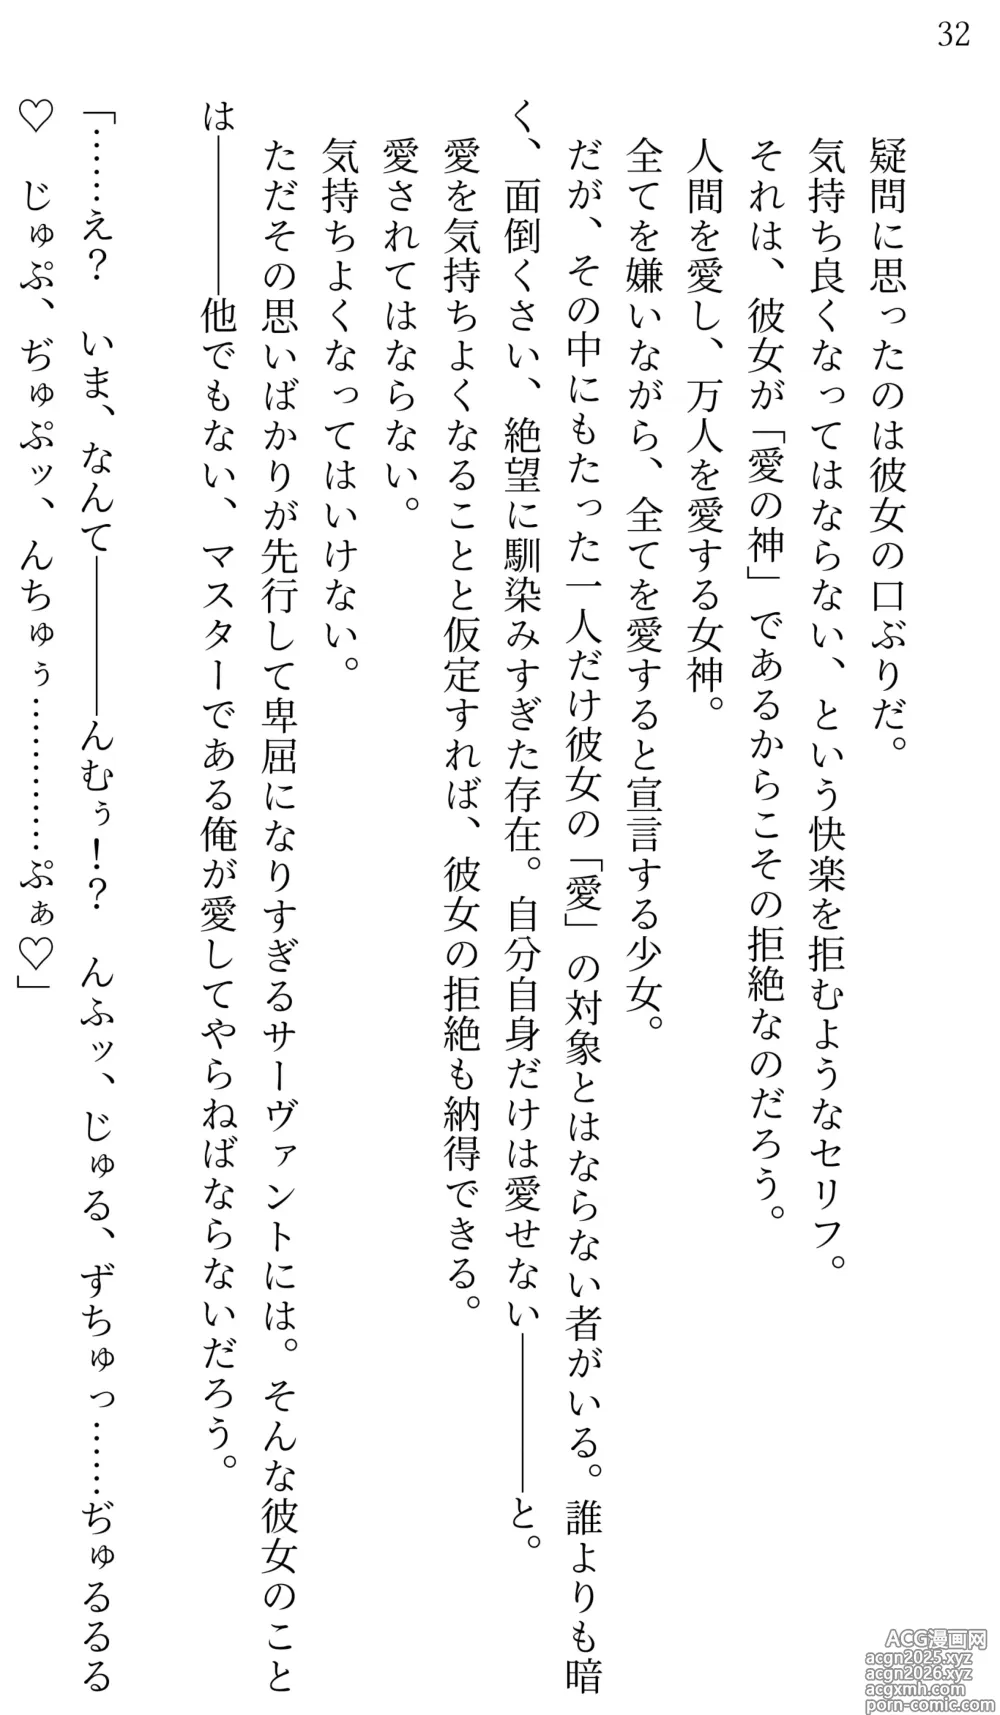 32
疑問に思ったのは彼女の口ぶりだ。
気持ち良くなってはならない、という快楽を拒むようなセリフ。
それは、彼女が「愛の神」であるからこその拒絶なのだろう。
人間を愛し、万人を愛する女神。
全てを嫌いながら、全てを愛すると宣言する少女。
だが、その中にもたった一人だけ彼女の「愛」の対象とはならない者がいる。誰よりも暗
く、面倒くさい、絶望に馴染みすぎた存在。自分自身だけは愛せない――――と。
愛を気持ちよくなることと仮定すれば、彼女の拒絶も納得できる。
愛されてはならない。
気持ちよくなってはいけない。
ただその思いばかりが先行して卑屈になりすぎるサーヴァントには。そんな彼女のこと
は――――他でもない、マスターである俺が愛してやらねばならないだろう。
「……え？　いま、なんて――――んむぅ！？　んふッ、じゅる、ずちゅっ……ぢゅるるる
♡　じゅぷ、ぢゅぷッ、んちゅぅ…………ぷぁ♡」
ACG漫画网
acgn2025.xyz
acgn2026.xyz
acgxmh.com
porn-comic.com